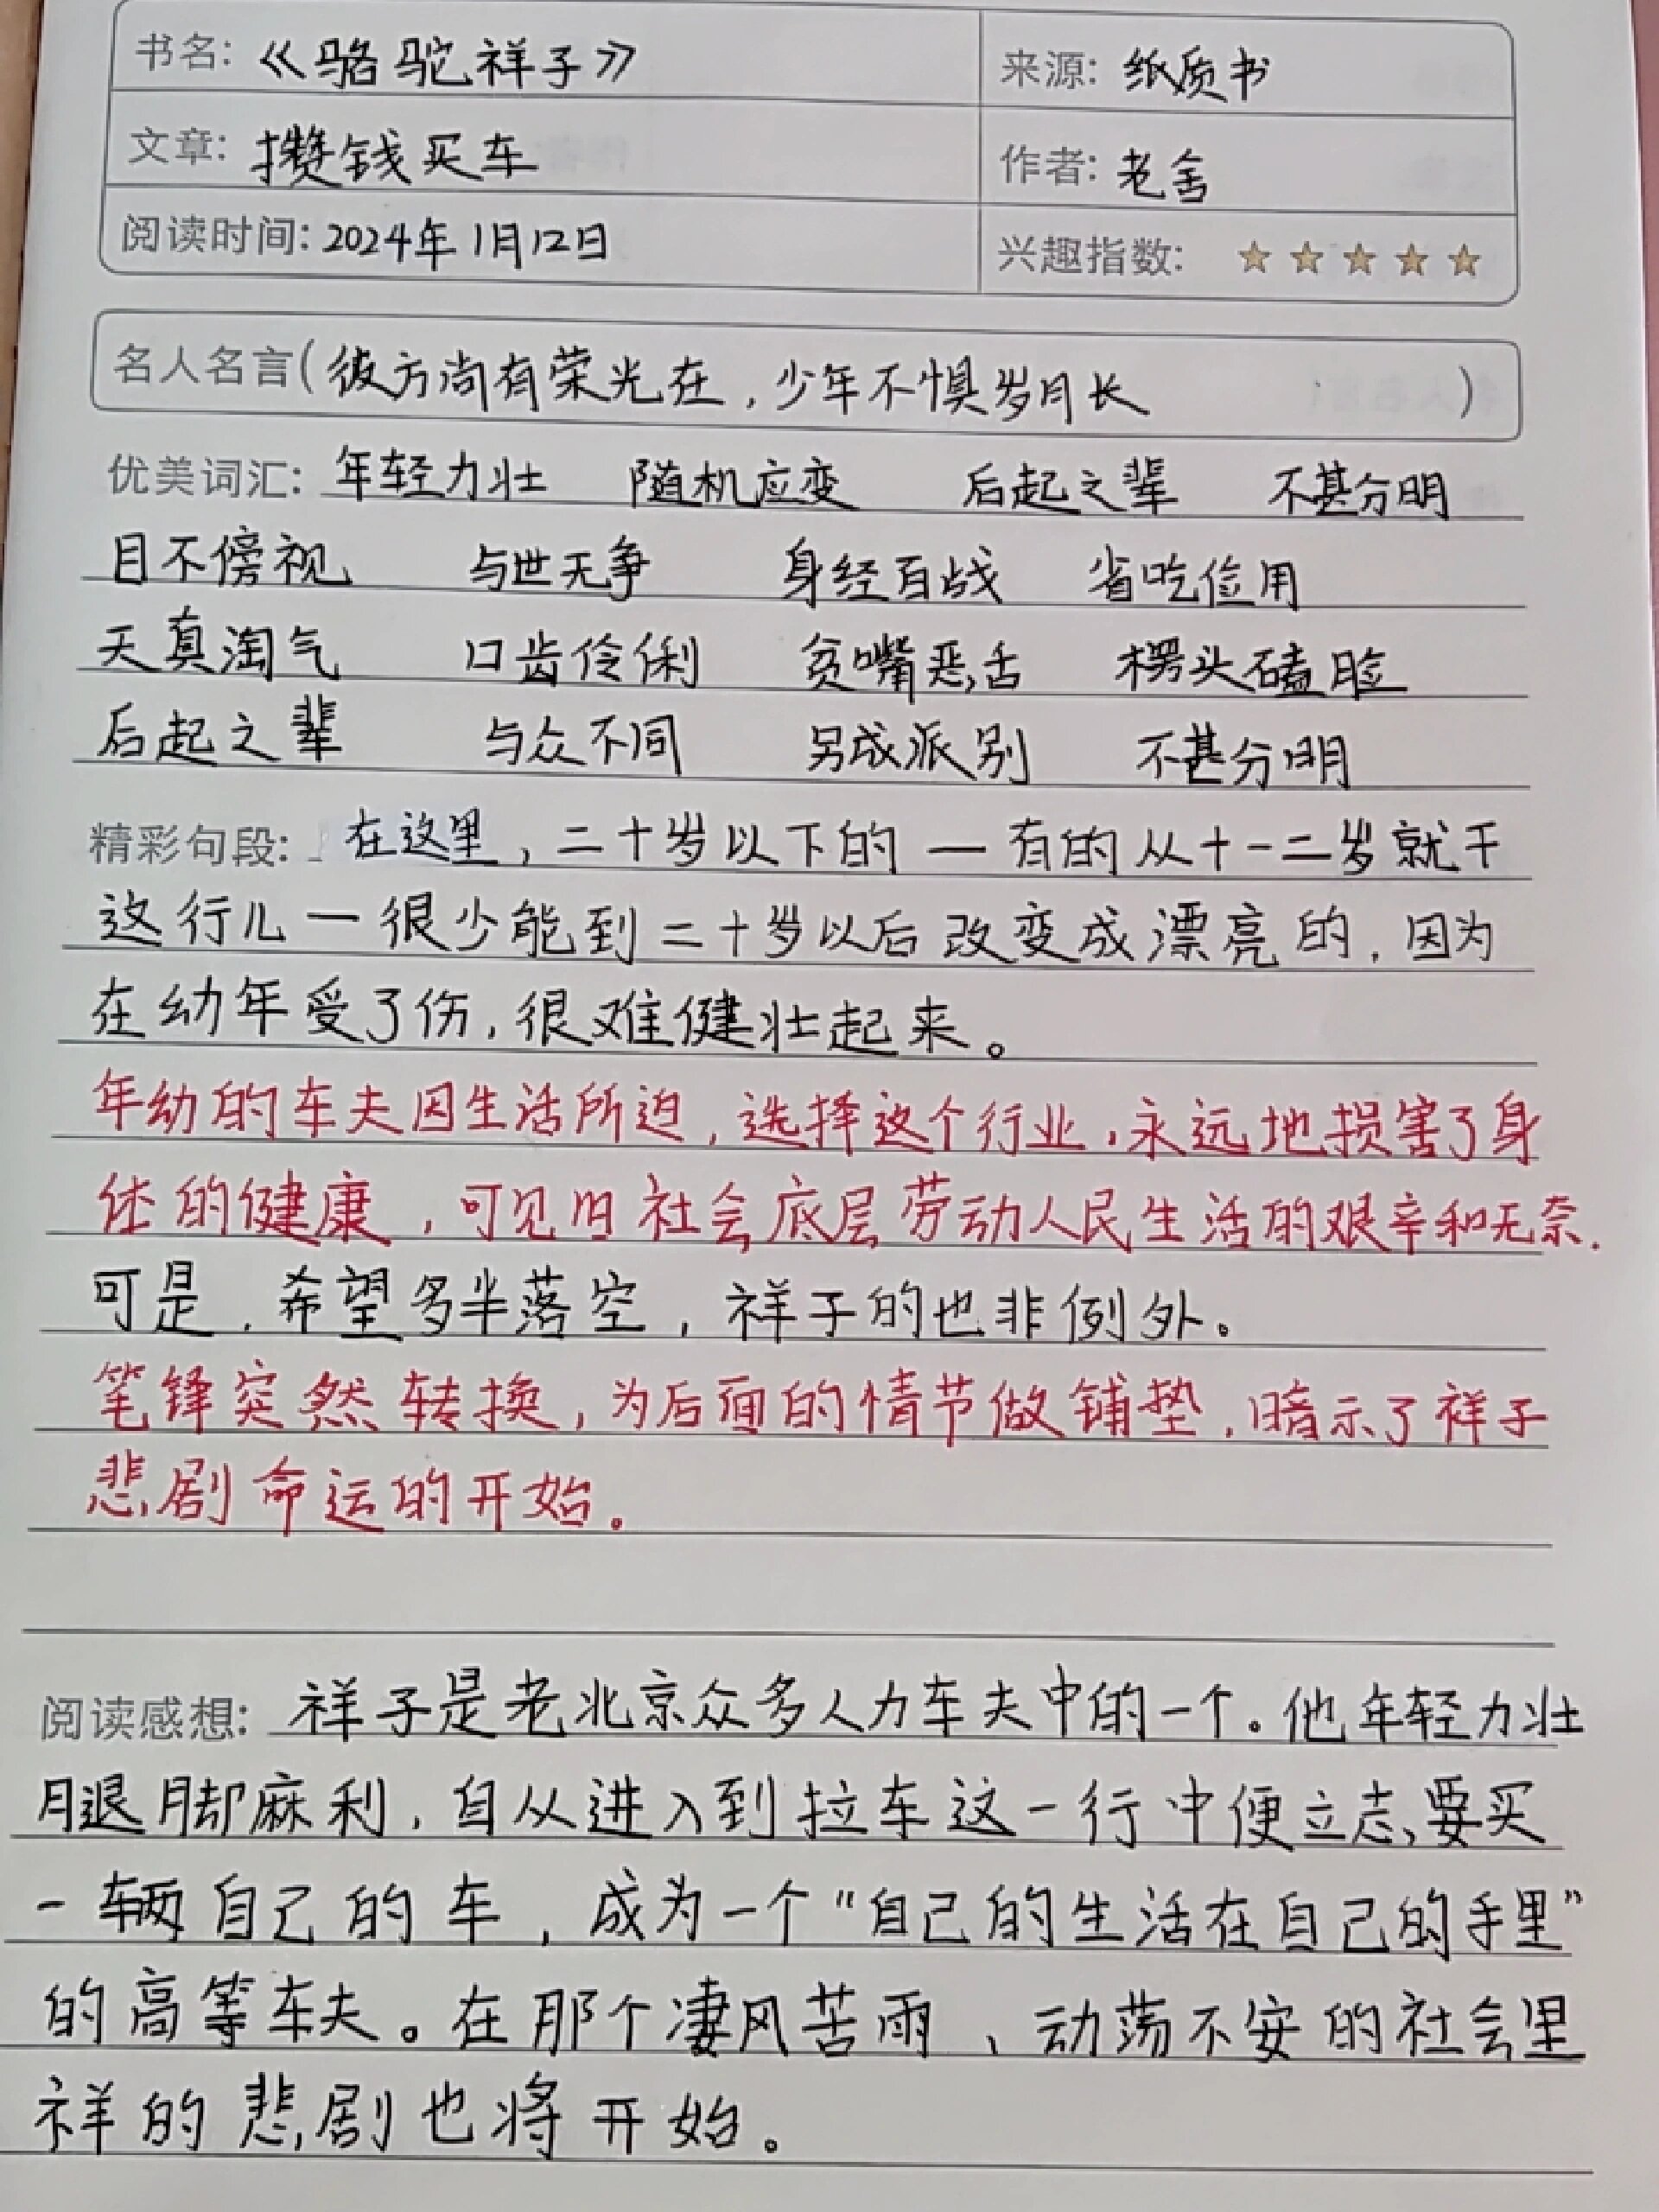 书名:《骆驼祥子》 来源:纸质书
文章:攒钱买车 作者:老舍
阅读时间:2024年1月12日 兴趣指数:
名人名言(彼方尚有荣光在,少年不惧岁月长)
优美词汇:年轻力壮 随机应变 后起之辈 不甚分明
目不傍视 与世无争 身经百战 省吃俭用
天真淘气 口齿伶俐 贫嘴恶舌 楞头磕脸
后起之辈 与众不同 另成派别 不甚分明
精彩句段:在这里,二十岁以下的—有的从十一二岁就干
这行儿—很少能到二十岁以后改变成漂亮的,因为
在幼年受了伤,很难健壮起来。
年幼的车夫因生活所迫,选择这个行业,永远地损害了身
体的健康,可见旧社会底层劳动人民生活的艰辛和无奈.
可是,希望多半落空,祥子的也非例外。
笔锋突然转换,为后面的情节做铺垫,暗示了祥子
悲剧命运的开始。
阅读感想:祥子是老北京众多人力车夫中的一个。他年轻力壮
腿脚麻利,自从进入到拉车这一行中便立志,要买
一辆自己的车,成为一个“自己的生活在自己的手里”
的高等车夫。在那个凄风苦雨、动荡不安的社会里
祥的悲剧也将开始。